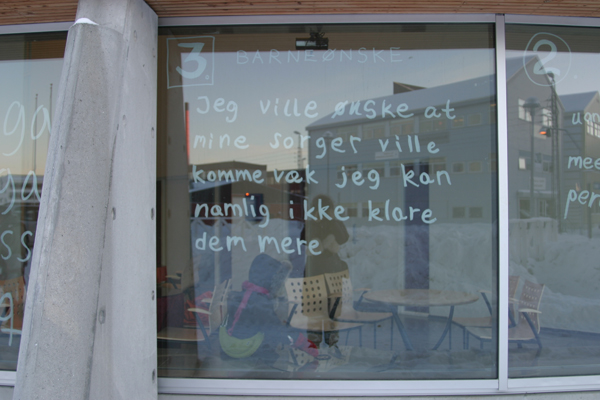 3. BARNEØNSKE
Jeg ville ønske at
mine sorger ville
komme væk jeg kan
namlig ikke klare
dem mere
2.